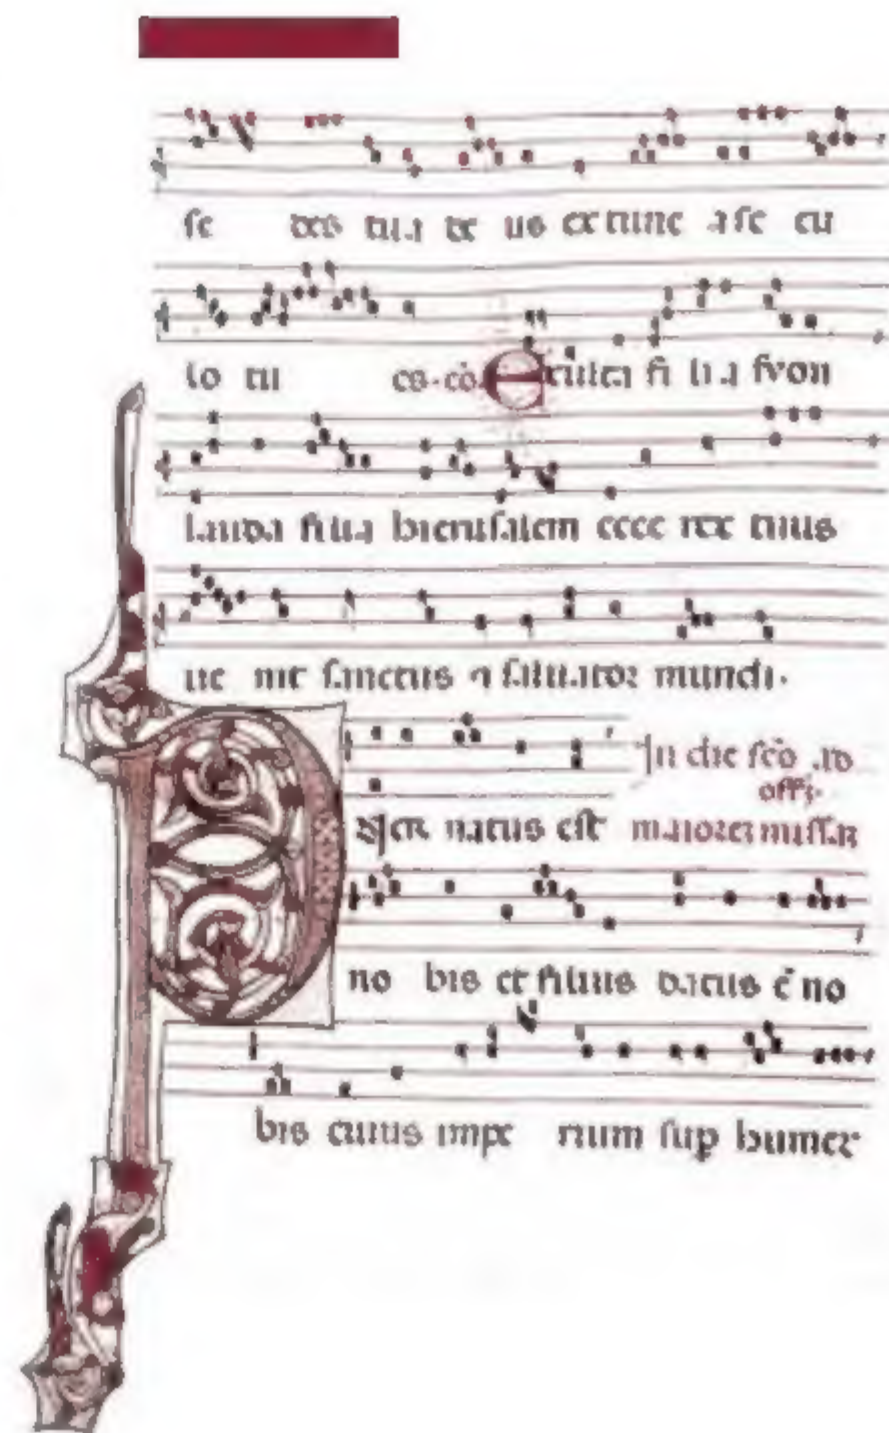 se des tua de us ex tunc a se cu
lo tu es · cō Exulta fi li a syon
lauda filia hierusalem ecce rex tuus
ue nit sanctus ⁊ saluator mundi ·
In die scō
offi ·
Puer natus est maiorem missam
no bis et filius datus ē no
bis cuius impe rium sup humer